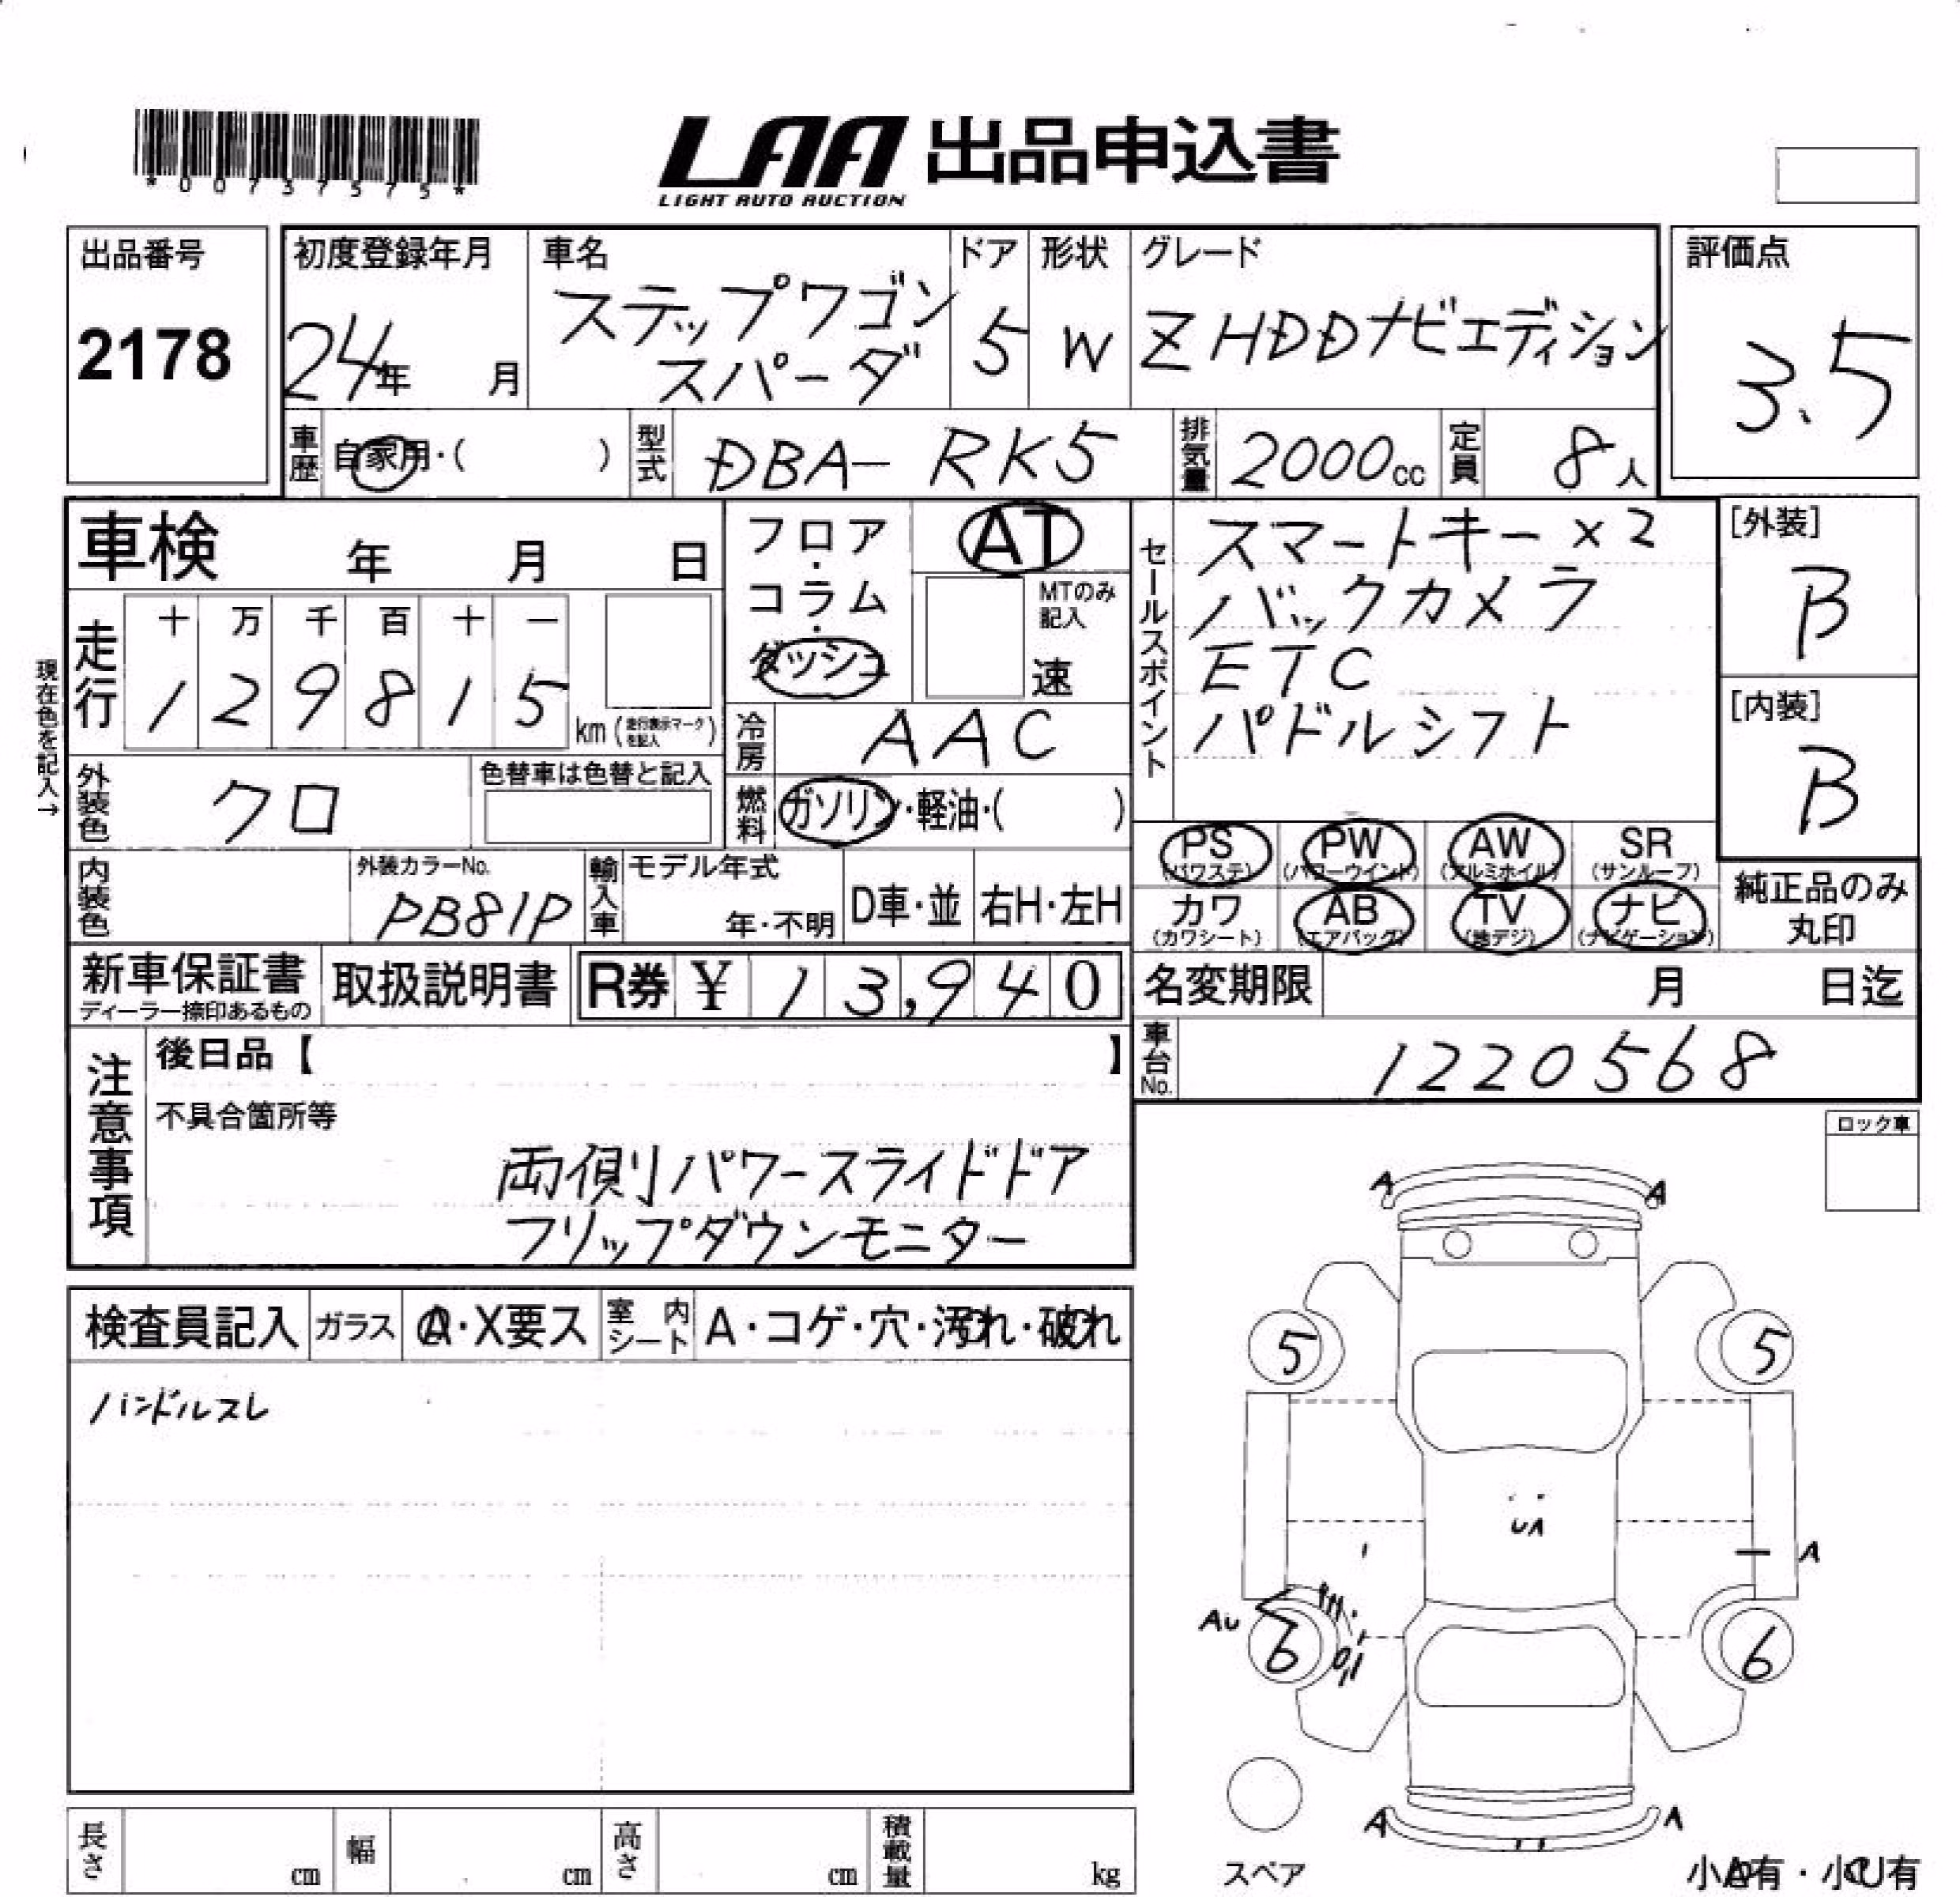 *00737575*
LAA 出品申込書
LIGHT AUTO AUCTION
出品番号
2178
初度登録年月
24年 月
車名
ステップワゴン
スパーダ
ドア
5
形状
W
グレード
Z HDDナビエディション
評価点
3.5
車歴 自家用・( )
型式 DBA- RK5
排気量 2000cc
定員 8人
車検 年 月 日
走行
十 万 千 百 十 一
1 2 9 8 1 5
km (走行表示マークを記入)
現在色を記入→
外装色 クロ
色替車は色替と記入
内装色
外装カラーNo.
PB81P
フロア・コラム・ダッシュ
AT
MTのみ記入
速
冷房 AAC
燃料 ガソリン・軽油・( )
輸入車
モデル年式
年・不明
D車・並
右H・左H
セールスポイント
スマートキー×2
バックカメラ
ETC
パドルシフト
[外装]
B
[内装]
B
PS (パワステ)
PW (パワーウインド)
AW (アルミホイル)
SR (サンルーフ)
カワ (カワシート)
AB (エアバッグ)
TV (地デジ)
ナビ (ナビゲーション)
純正品のみ
丸印
新車保証書
ディーラー捺印あるもの
取扱説明書
R券 ¥ 13,940
名変期限 月 日迄
車台No. 1220568
注意事項
後日品【 】
不具合箇所等
両側パワースライドドア
フリップダウンモニター
ロック車
検査員記入
ガラス A・X要ス
室内シート A・コゲ・穴・汚れ・破れ
ハンドルスレ
A A
5 5
UA
A
AU
6 6
A A
スペア
小A有・小U有
長さ cm
幅 cm
高さ cm
積載量 kg